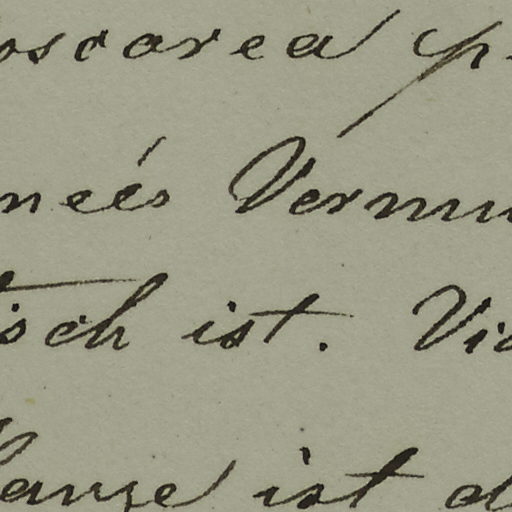 oscorea p
neés Vermu
tisch ist. Vi
lanze ist d